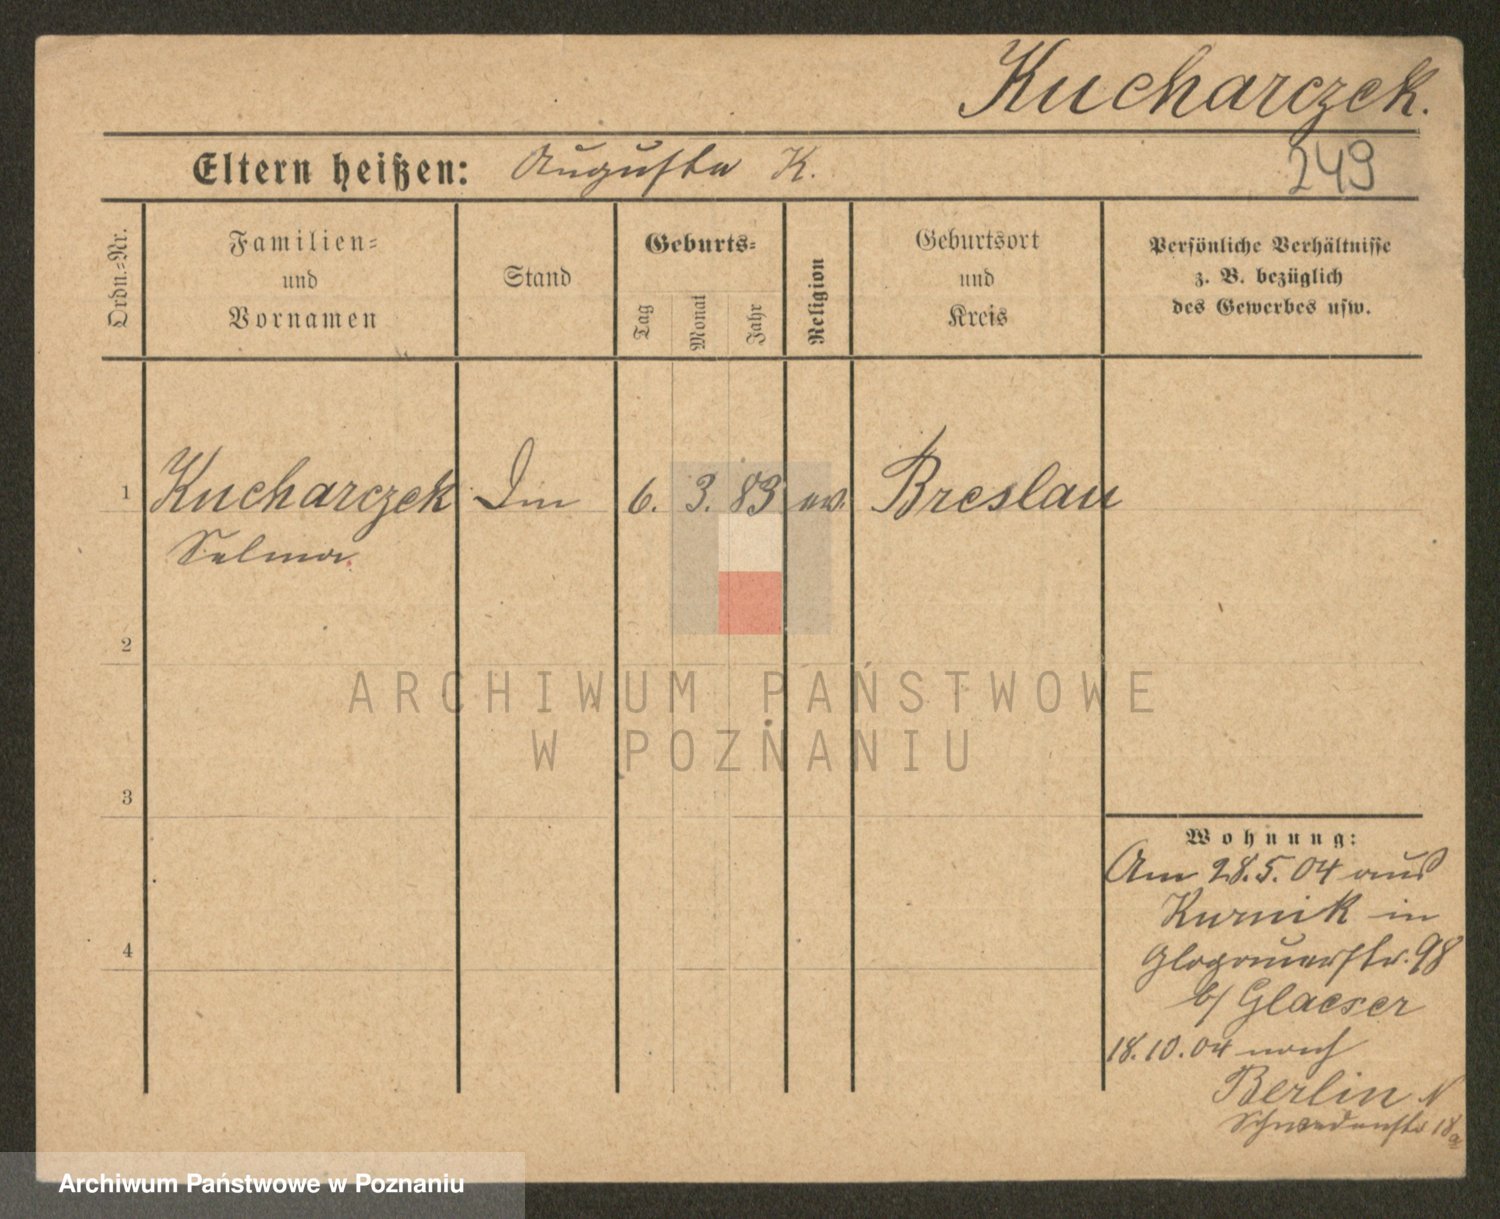 Kucharczek.
Eltern heißen: Auguste K.
249
Ordn.-Nr.
Familien-
und
Vornamen
Stand
Geburts-
Tag
Monat
Jahr
Religion
Geburtsort
und
Kreis
Persönliche Verhältnisse
z. B. bezüglich
des Gewerbes usw.
1 Kucharczek 6. 3. 83 ev. Breslau
Selma
2
ARCHIWUM PAŃSTWOWE
W POZNANIU
3
Wohnung:
Am 28.5.04 aus
Kurnik in
Glogauerstr. 98
b/ Glaeser
4
18.10.04 nach
Berlin N
Schwedenstr 18a
Archiwum Państwowe w Poznaniu